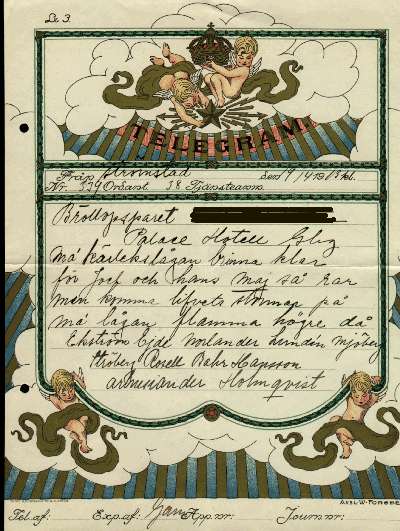 Lx 3
TELEGRAM.
Från Strömstad den 9/4 1918 kl.
Nr. 379 Ordant. 38 Tjänsteanm.
Bröllopsparet
Palace Hotell Gbg
må kärlekslågan brinna klar
för Josf och hans maj så rar
men komma lifvets stormar på
må lågan flamma högre då
Ekström Ejde Norlander Lundin Mjöberg
Ströberg Cosell Bahr Hansson
Holmqvist
AXEL W. FORSBE
Tel.af: Exp.af: App.nr: Journ.nr: